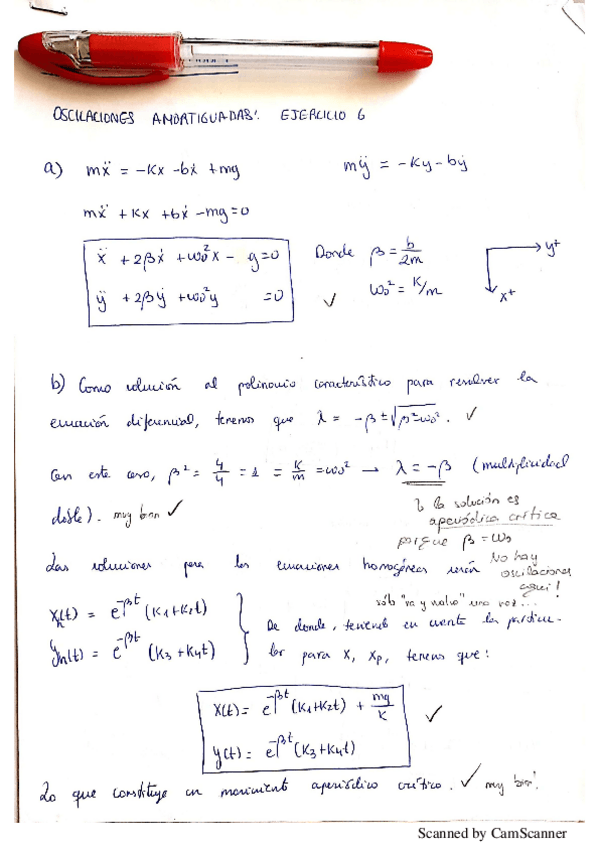 OSCILACIONES AMORTIGUADAS: EJERCICIO 6
a) mẍ = -Kx -bẋ +mg mÿ = -Ky -bẏ
mẍ + Kx + bẋ - mg = 0
ẍ + 2βẋ + ω₀²x - g = 0 Donde β = b/2m y+
ÿ + 2βẏ + ω₀²y = 0 ✓ ω₀² = K/m x+
b) Como solución al polinomio característico para resolver la
ecuación diferencial, tenemos que λ = -β ± √β²-ω₀². ✓
Con este caso, β² = 4/4 = 1 = K/m = ω₀² → λ = -β (multiplicidad
doble). muy bien ✓
la solución es
aperiódica crítica
porque β = ω₀
Las soluciones para las ecuaciones homogéneas serán
No hay
oscilaciones
aquí!
sólo "va y vuelve" una vez...
xh(t) = e^-βt (K1+K2t)
yh(t) = e^-βt (K3+K4t)
De donde, teniendo en cuenta la particu-
lar para x, xp, tenemos que:
x(t) = e^-βt (K1+K2t) + mg/K
y(t) = e^-βt (K3+K4t) ✓
Lo que constituye un movimiento aperiódico crítico. ✓ muy bien!
Scanned by CamScanner